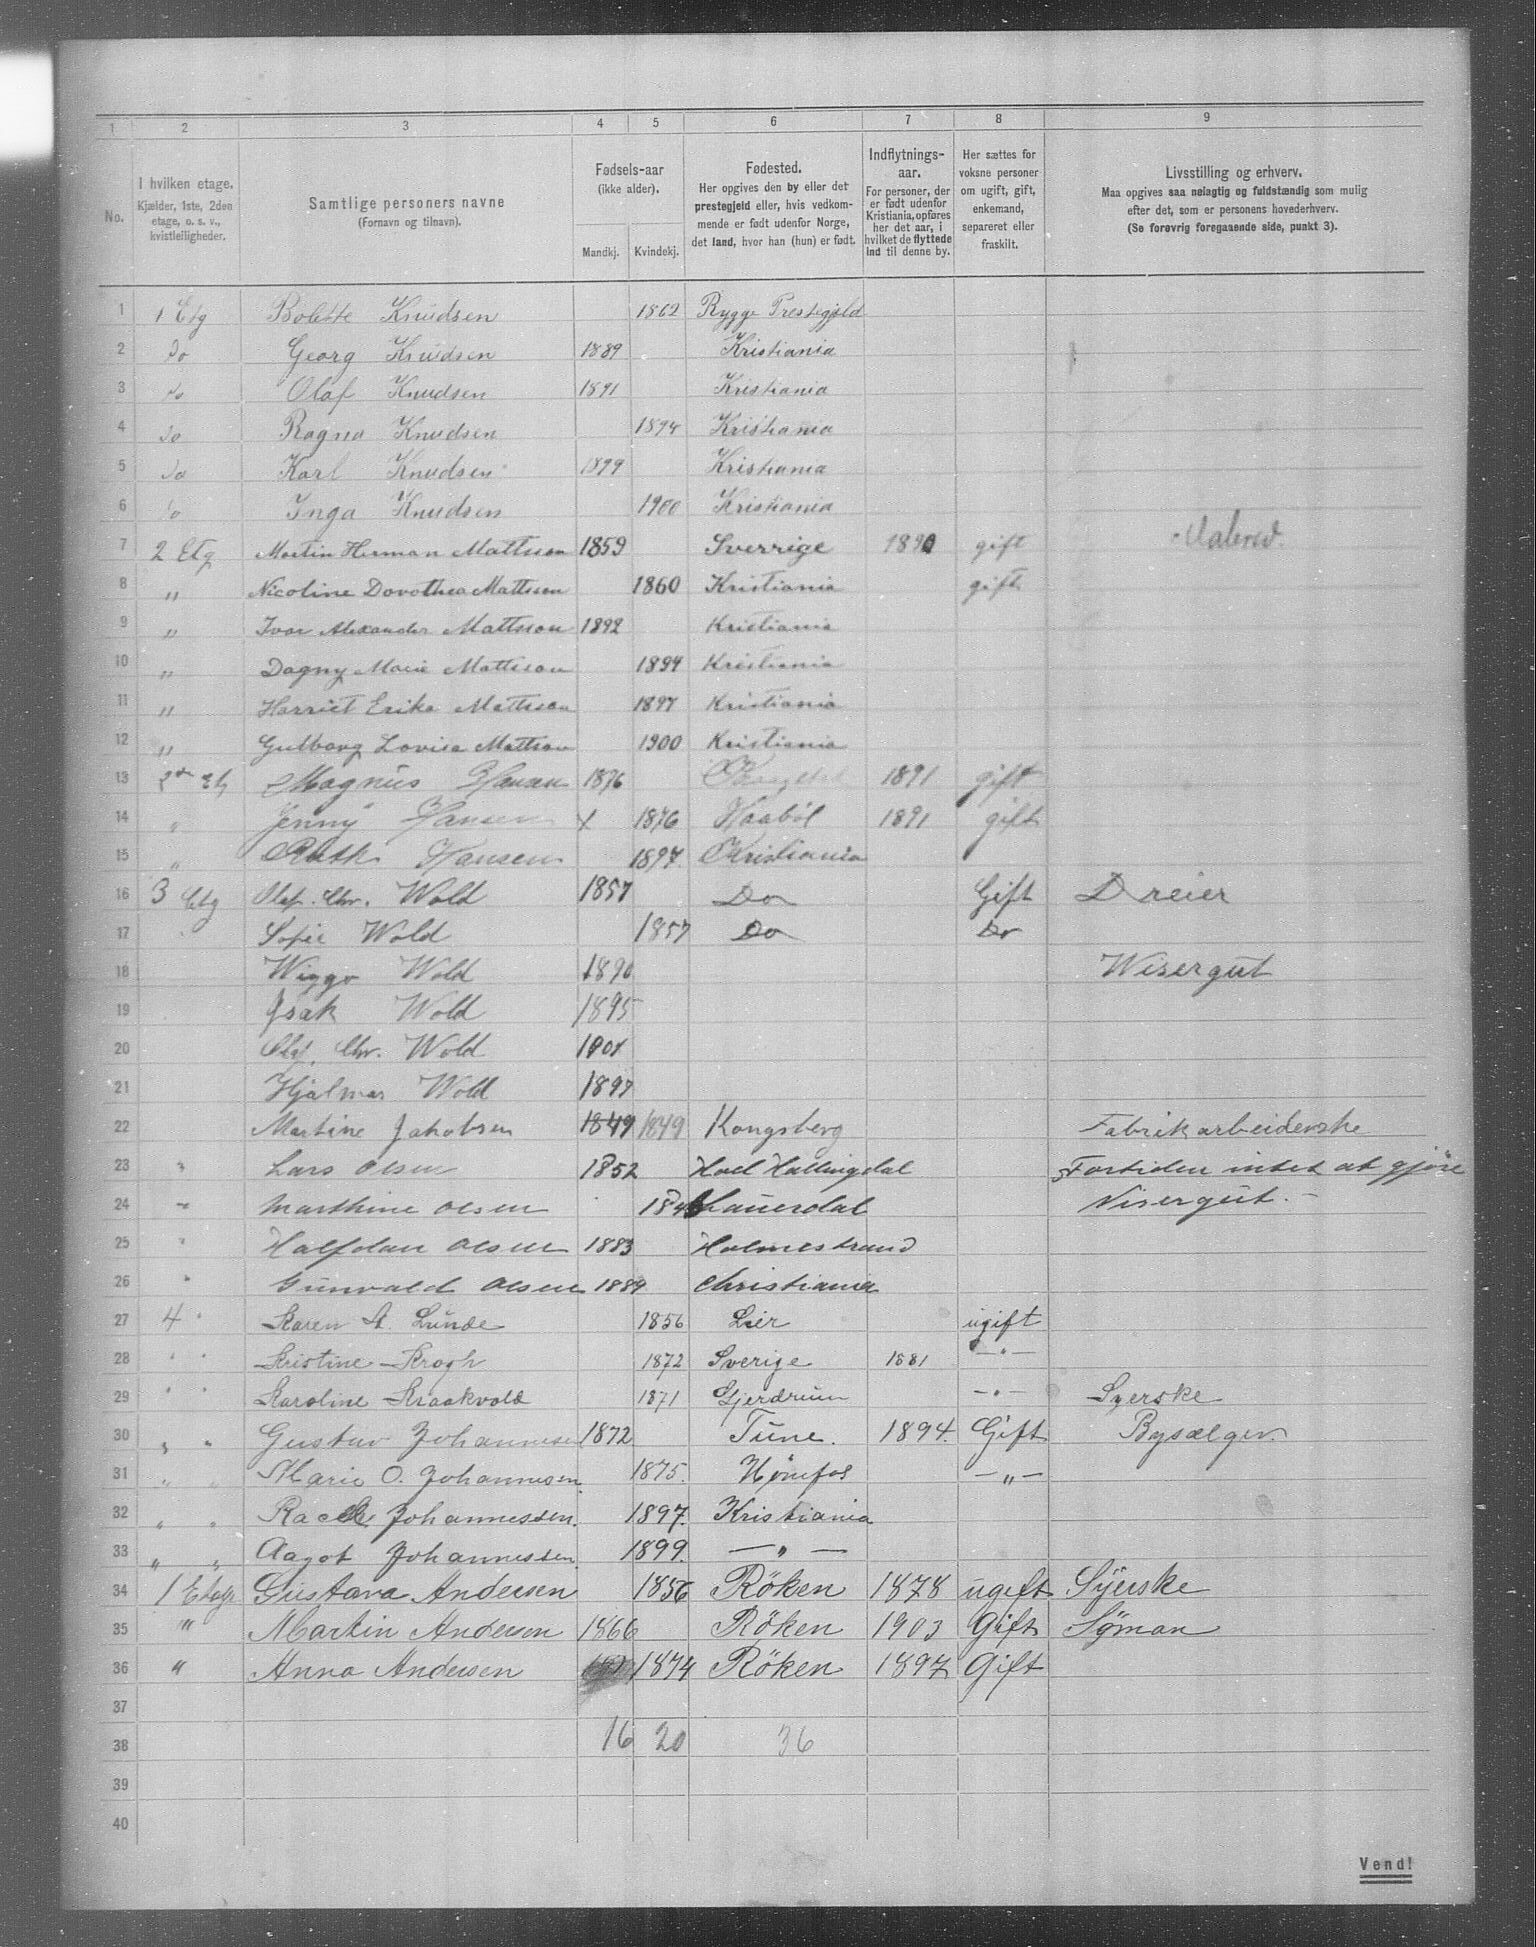 1 2 3 4 5 6 7 8 9
No.
I hvilken etage.
Kjælder, 1ste, 2den
etage, o. s. v.,
kvistleiligheder.
Samtlige personers navne
(Fornavn og tilnavn).
Fødsels-aar
(ikke alder).
Mandkj. Kvindekj.
Fødested.
Her opgives den by eller det
prestegjeld eller, hvis vedkom-
mende er født udenfor Norge,
det land, hvor han (hun) er født.
Indflytnings-
aar.
For personer, der
er født udenfor
Kristiania, opføres
her det aar, i
hvilket de flyttede
ind til denne by.
Her sættes for
voksne personer
om ugift, gift,
enkemand,
separeret eller
fraskilt.
Livsstilling og erhverv.
Maa opgives saa nøiagtig og fuldstændig som mulig
efter det, som er personens hovederhverv.
(Se forøvrig foregaaende side, punkt 3).
1 1 Etg Bolette Knudsen 1862 Rygge Prestegjæld
2 Do Georg Knudsen 1889 Kristiania
3 do Olaf Knudsen 1891 Kristiania
4 do Ragna Knudsen 1894 Kristiania
5 do Karl Knudsen 1899 Kristiania
6 do Inga Knudsen 1900 Kristiania
7 2 Etg Martin Herman Mattsson 1859 Sverrige 1890 gift
8 " Nicoline Dorothea Mattsson 1860 Kristiania gift
9 " Ivar Alexander Mattsson 1892 Kristiania
10 " Dagny Marie Mattsson 1894 Kristiania
11 " Harriet Erika Mattsson 1897 Kristiania
12 " Gulborg Lovisa Mattson 1900 Kristiania
13 Magnus Hansen 1876 1891 gift
14 " Jenny Hansen x 1876 Haabøl 1891 gift
15 " Ruth Hansen 1897. Kristiania
16 3 Etg Olaf. Chr. Wold 1857 Do Gift Dreier
17 Sofie Wold 1857 Do Do
18 Wiggo Wold 1890 Wisergut
19 Isak Wold 1895
20 Olaf. Chr. Wold 1901
21 Hjalmar Wold 1897
22 Martine Jakobsen 1849 1849 Kongsberg Fabrikarbeiderske
23 " Lars Olsen 1852 Hoel Hallingdal Fortiden intet at gjøre
24 " Marthine Olsen Lauerdal Visergut. -
25 " Halfdan Olsen 1883 Holmestrand
26 " Gunvald Olsen 1889 Christiania
27 4 " Karen A. Lunde 1856 Lier ugift
28 " " Kristine Krogh 1872 Sverige 1881 -"-
29 " " Karoline Kraakvold 1871 Gjerdrum -"- Syerske
30 " " Gustav Johannesen 1872 Tune. 1894. Gift Bysælger.
31 " " Marie O. Johannesen. 1875. Hønefos -"-
32 " " Johannessen. 1897. Kristiania
33 " " Aagot Johannessen. 1899. -"-
34 1 Etage Gustava Andersen 1856 Röken 1878 ugift Syerske
35 " Martin Andersen 1866 Röken 1903 Gift Søman
36 " Anna Andersen 1874 Röken 1897 Gift
37
38 16 20 36
39
40
Vend!